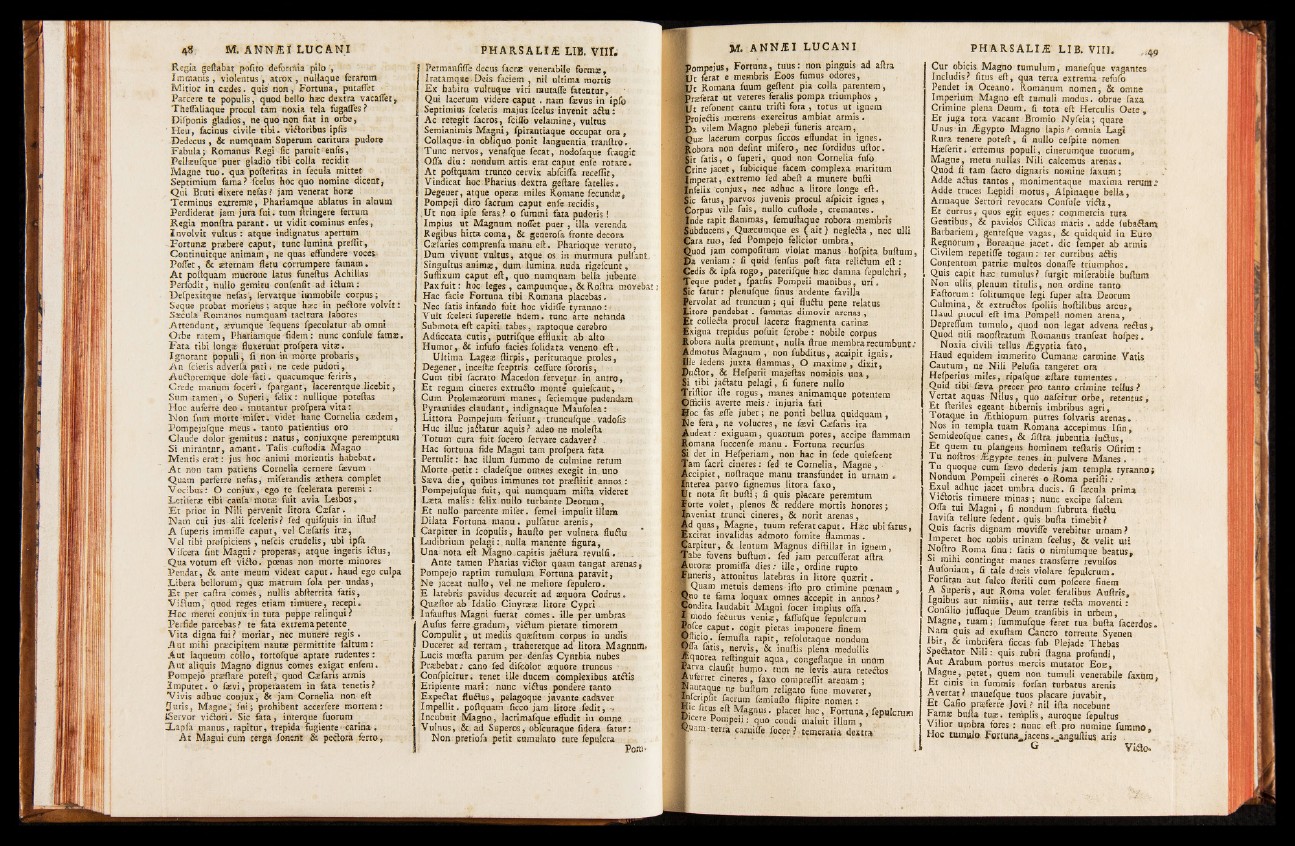 48 M. ANNÆI LUCANI
Regia gestabat posito deformia pilo,
Immanis, violentus, atrox, nullaque ferarum
Mitior in cædes. quis non, Fortuna, putasset
Parcere te populis, quod bello hæc dextra vacasset,
Thessaliaque procul tam noxia tela fugasses?
Disponis gladios, ne quo non fiat in orbe,
Heu, facinus civile tibi. victoribus ipsis
Dedecus, & numquam Superum caritura pudore
Fabula; Romanus Regi sic paruit ensis,
Pellæusque puer gladio tibi colla recidit
Magne tuo. qua posteritas in secula mittet
Septimium fama? scelus hoc quo nomine dicent,
Qui Bruti dixere nefas? jam venerat horæ
Terminus extremæ, Phariamque ablatus in alnum
Perdiderat jam jura sui. tum stringere ferrum
Regia monstra parant. ut vidit cominus enses,
Involvit vultus: atque indignatus apertum
Fortunæ præbere caput, tunc lumina pressit,
Continuitque animam, ne quas effundere voces
Posset, & æternam fletu corrumpere famam.
At postquam mucrone latus funestus Achillas
Perfodit, nullo gemitu consensit ad ictum:
Despexitque nefas, servatque immobile corpus;
Seque probat moriens: atque hæc in pectore volvit:
Sæcula Romanos numquam tacitura labores
Attendunt, ævumque sequens speculatur ab omni
Orbe ratem, Phariamque fidem: nunc consule famæ.
Fata tibi longæ fluxerunt prospera vitæ.
Ignorant populi, si non in morte probaris,
An scieris adversa pati. ne cede pudori,
Auctoremque dole fati. quacumque feriris,
Crede manum soceri. spargant, lacerentque licebit,
Sum tamen, o Superi, felix: nullique potestas
Hoc auferre deo. mutantur prospera vita:
Non sum morte miser. videt hanc Cornelia cædem,
Pompejusque meus. tanto patientius oro
Claude dolor gemitus: natus, conjuxque peremptum
Si mirantur, amant. Talis custodia Magno
Mentis erat: jus hoc animi morientis habebat.
At non tam patiens Cornelia cernere sævum
Quam perferre nefas, miserandis æthera complet
Vocibus: O conjux, ego te scelerata peremi:
Letiferæ tibi causa moræ fuit avia Lesbos,
Et prior in Nili pervenit litora Cæsar.
Nam cui jus alii sceleris? sed quisquis in istud
A superis immisse caput, vel Cæsaris iræ,
Vel tibi prospiciens, nescis crudelis, ubi ipsa
Viscera sint Magni: properas, atque ingeris ictus,
Qua votum est victo. pœnas non morte minores
Pendat, & ante meum videat caput. haud ego culpa
Libera bellorum, quæ matrum sola per undas,
Et per castra comes, nullis absterrita fatis,
Victum, quod reges etiam timuere, recepi.
Hoc merui conjux in tuta puppe relinqui?
Perfide parcebas? te fata extrema petente
Vita digna fui? moriar, nec munere regis.
Aut mihi præcipitem nautæ permittite saltum:
Aut laqueum collo, tortosque aptare rudentes:
Aut aliquis Magno dignus comes exigat ensem.
Pompejo præstare potest, quod Cæsaris armis
Imputet. o sævi, properantem in fata tenetis?
Vivis adhuc conjux, & jam Cornelia non est
Juris, Magne, sui; prohibent accersere mortem:
Servor victori. Sic fata, interque suorum
Lapsa manus, rapitur, trepida fugiente carina.
At Magni cum terga sonent & pectora ferro,
PHARSALIÆ LIB. VIII.
Permansisse decus sacræ venerabile formæ,
Iratamque Deis faciem, nil ultima mortis
Ex habitu vultuque viri mutasse fatentur,
Qui lacerum videre caput. nam sævus in ipso
Septimius sceleris majus scelus invenit actu:
Ac retegit sacros, scisso velamine, vultus
Semianimis Magni, spirantiaque occupat ora,
Collaque in obliquo ponit languentia transtro.
Tunc nervos, venasque secat, nodosaque frangit
Ossa diu: nondum artis erat caput ense rotare.
At postquam trunco cervix abscissa recessit,
Vindicat hoc Pharius dextra gestare satelles.
Degener, atque operæ miles Romane secundæ,
Pompeji diro sacrum caput ense recidis,
Ut non ipse feras? o summi fata pudoris!
Impius ut Magnum nosset puer, illa verenda
Regibus hirta coma, & generosa fronte decora
Cæsaries comprensa manu est. Pharioque veruto,
Dum vivunt vultus, atque os in murmura pulsant
Singultus animæ, dum lumina nuda rigescunt,
Suffixum caput est, quo numquam bella jubente
Pax fuit: hoc leges, campumque, & Rostra movebat:
Hac facie Fortuna tibi Romana placebas.
Nec satis infando fuit hoc vidisse tyranno:
Vult sceleri superesse fidem. tunc arte nefanda
Submota est capiti tabes, raptoque cerebro
Adsiccata cutis, putrisque effluxit ab alto
Humor, & infuso facies solidata veneno est.
Ultima Lageæ stirpis, perituraque proles,
Degener, incestæ sceptris cessure sororis,
Cum tibi sacrato Macedon servetur in antro,
Et regum cineres extructo monte quiescant,
Cum Ptolemæorum manes, seriemque pudendam
Pyramides claudant, indignaque Mausolea:
Littora Pompejum feriunt, truncusque vadosis
Huc illuc jactatur aquis? adeo ne molesta
Totum cura fuit socero servare cadaver?
Hac fortuna fide Magni tam prospera fata
Pertulit: hac illum summo de culmine rerum
Morte petit: cladesque omnes exegit in uno
Sæva die, quibus immunes tot præstitit annos:
Pompejusque fuit, qui numquam mista videret
Læta malis: felix nullo turbante Deorum,
Et nullo parcente miser. semel impulit illum
Dilata Fortuna manu. pulsatur arenis,
Carpitur in scopulis, hausto per vulnera fluctu
Ludibrium pelagi: nulla manente figura,
Una nota est Magno capitis jactura revulsi.
Ante tamen Pharias victor quam tangat arenas,
Pompejo raptim tumulum Fortuna paravit,
Ne jaceat nullo, vel ne meliore sepulcro.
E latebris pavidus decurrit ad æquora Codrus.
Quæstor ab Idalio Cinyrææ litore Cypri
Infaustus Magni fuerat comes. ille per umbras
Ausus ferre gradum, victum pietate timorem
Compulit, ut mediis quæsitum corpus in undis
Duceret ad terram, traheretque ad litora Magnum.
Lucis mœsta parum per densas Cynthia nubes
Præbebat: cano sed discolor æquore truncus
Conspicitur. tenet ille ducem complexibus arctis
Eripiente mari: nunc victus pondere tanto
Expectat fluctus, pelagoque juvante cadaver
Impellit. postquam sicco jam litore sedit,
Incubuit Magno, lacrimasque effudit in omne
Vulnus, & ad Superos, obscuraque sidera fatur:
Non pretiosa petit cumulato ture sepulcra
Pom-
M. ANNÆI LUCANI
Pompejus, Fortuna, tuus: non pinguis ad astra
Ut ferat e membris Eoos fumus odores,
Ut Romana suum gestent pia colla parentem,
Præferat ut veteres feralis pompa triumphos,
Ut resonent cantu tristi fora, totus ut ignem
Projectis mœrens exercitus ambiat armis.
Da vilem Magno plebeji funeris arcam,
Quæ lacerum corpus siccos effundat in ignes.
Robora non desint misero, nec sordidus ustor.
Sit satis, o superi, quod non Cornelia fuso
Crine jacet, subicique facem complexa maritum
Imperat, extremo sed abest a munere busti
Infelix conjux, nec adhuc a litore longe est.
Sic fatus, parvos juvenis procul aspicit ignes,
Corpus vile suis, nullo custode, cremantes.
Inde rapit flammas, semustaque robora membris
Subducens, Quæcumque es (ait) neglecta, nec ulli
Cara tuo, sed Pompejo felicior umbra,
Quod jam compositum violat manus hospita bustum,
Da veniam: si quid sensus post fata relictum est:
Cedis & ipsa rogo, paterisque hæc damna sepulchri,
Teque pudet, sparsis Pompeii manibus, uri.
Sic fatur: plenusque sinus ardente favilla
Pervolat ad truncum; qui fluctu pene relatus
Litore pendebat. summas dimovit arenas,
Et collecta procul laceræ fragmenta carinæ
Exigua trepidus posuit scrobe: nobile corpus
Robora nulla premunt, nulla strue membra recumbunt:
Admotus Magnum, non subditus, accipit ignis.
Ille sedens juxta flammas, O maxime, dixit,
Ductor, & Hesperii majestas nominis una,
Si tibi jactatu pelagi, si funere nullo
Tristior iste rogus, manes animamque potentem
Officiis averte meis: injuria fati
Hoc fas esse jubet; ne ponti bellua quidquam,
Ne fera, ne volucres, ne sævi Cæsaris ira
Audeat: exiguam, quantum potes, accipe flammam
Romana succense manu. Fortuna recursus
Si det in Hesperiam, non hac in sede quiescent
Tam sacri cineres: sed te Cornelia, Magne,
Accipiet, nostraque manu transfundet in urnam.
Interea parvo signemus litora saxo,
Ut nota sit busti; si quis placare peremtum
Forte volet, plenos & reddere mortis honores;
Inveniat trunci cineres, & norit arenas,
Ad quas, Magne, tuum referat caput. Hæc ubi fatus,
Excitat invalidas admoto fomite flammas.
Carpitur, & lentum Magnus distillat in ignem,
Tabe fovens bustum. sed jam percusserat astra
Auroræ promissa dies: ille, ordine rupto
Funeris, attonitus latebras in litore quærit.
Quam metuis demens isto pro crimine pœnam,
Quo te fama loquax omnes accepit in annos?
Condita laudabit Magni socer impius ossa.
I modo securus veniæ, fassusque sepulcrum
Posce caput. cogit pietas imponere finem
Officio. semusta rapit, resolutaque nondum
Ossa satis, nervis, & inustis plena medullis
Æquorea restinguit aqua, congestaque in unum
Parva clausit humo. tum ne levis aura retectos
Auferret cineres, saxo compressit arenam;
Nautaque ne bustum religato fune moveret,
Inscripsit sacrum semiusto stipite nomen:
Hic situs est Magnus. placet hoc, Fortuna, sepulcrum
Dicere Pompeii: quo condi maluit illum,
Quam terra caruisse socer? temeraria dextra
PHARSALIÆ LIB. VIII. 49
Cur obicis Magno tumulum, manesque vagantes
Includis? situs est, qua terra extrema refuso
Pendet in Oceano. Romanum nomen, & omne
Imperium Magno est tumuli modus. obrue saxa
Crimine plena Deum. si tota est Herculis Oete,
Et juga tota vacant Bromio Nyseia; quare
Unus in Ægypto Magno lapis? omnia Lagi
Rura tenere potest, si nullo cespite nomen
Hæserit. erremus populi, cinerumque tuorum,
Magne, metu nullas Nili calcemus arenas.
Quod si tam sacro dignaris nomine saxum;
Adde actus tantos, monimentaque maxima rerum:
Adde truces Lepidi motus, Alpinaque bella,
Armaque Sertori revocato Consule victa,
Et currus, quos egit eques: commercia tuta
Gentibus, & pavidos Cilicas maris. adde subactam
Barbariem, gentesque vagas, & quidquid in Euro
Regnorum, Boreaque jacet. dic semper ab armis
Civilem repetisse togam: ter curribus actis
Contentum patriæ multos donasse triumphos.
Quis capit hæc tumulus? surgit miserabile bustum
Non ullis plenum titulis, non ordine tanto
Fastorum: solitumque legi super alta Deorum
Culmina, & extructos spoliis hostilibus arcus,
Haud procul est ima Pompeii nomen arena,
Depressum tumulo, quod non legat advena rectus,
Quod nisi monstratum Romanus transeat hospes.
Noxia civili tellus Ægyptia fato,
Haud equidem immerito Cumanæ carmine Vatis
Cautum, ne Nili Pelusia tangeret ora
Hesperius miles, ripasque æstate tumentes.
Quid tibi sæva precer pro tanto crimine tellus?
Vertat aquas Nilus, quo nascitur orbe, retentus,
Et steriles egeant hibernis imbribus agri,
Totaque in Æthiopum putres solvaris arenas.
Nos in templa tuam Romana accepimus Isin,
Semideosque canes, & sistra jubentia luctus,
Et quem tu plangens hominem testaris Osirim:
Tu nostros Ægypte tenes in pulvere Manes.
Tu quoque cum sævo dederis jam templa tyranno;
Nondum Pompeii cineres o Roma petisti:
Exul adhuc jacet umbra ducis. si sæcula prima
Victoris timuere minas; nunc excipe saltem
Ossa tui Magni, si nondum subruta fluctu
Invisa tellure sedent. quis busta timebit?
Quis sacris dignam movisse verebitur urnam?
Imperet hoc nobis utinam scelus, & velit uti
Nostro Roma sinu: satis o nimiumque beatus,
Si mihi contingat manes transferre revulsos
Ausoniam, si tale ducis violare sepulcrum.
Forsitan aut sulco sterili cum poscere finem
A Superis, aut Roma volet feralibus Austris,
Ignibus aut nimiis, aut terræ tecta moventi:
Consilio jussuque Deum transibis in urbem,
Magne, tuam; summusque feret tua busta sacerdos.
Nam quis ad exustam Cancro torrente Syenen
Ibit, & imbrifera siccas sub Plejade Thebas
Spectator Nili: quis rubri stagna profundi,
Aut Arabum portus mercis mutator Eoæ,
Magne, petet, quem non tumuli venerabile saxum,
Et cinis in summis forsan turbatus arenis
Avertat? manesque tuos placare juvabit,
Et Casio præferre Jovi? nil ista nocebunt
Famæ busta tuæ. templis, auroque sepultus
Vilior umbra fores: nunc est pro numine summo,
Hoc tumulo Fortuna jacens. angustius aris
G Victo-